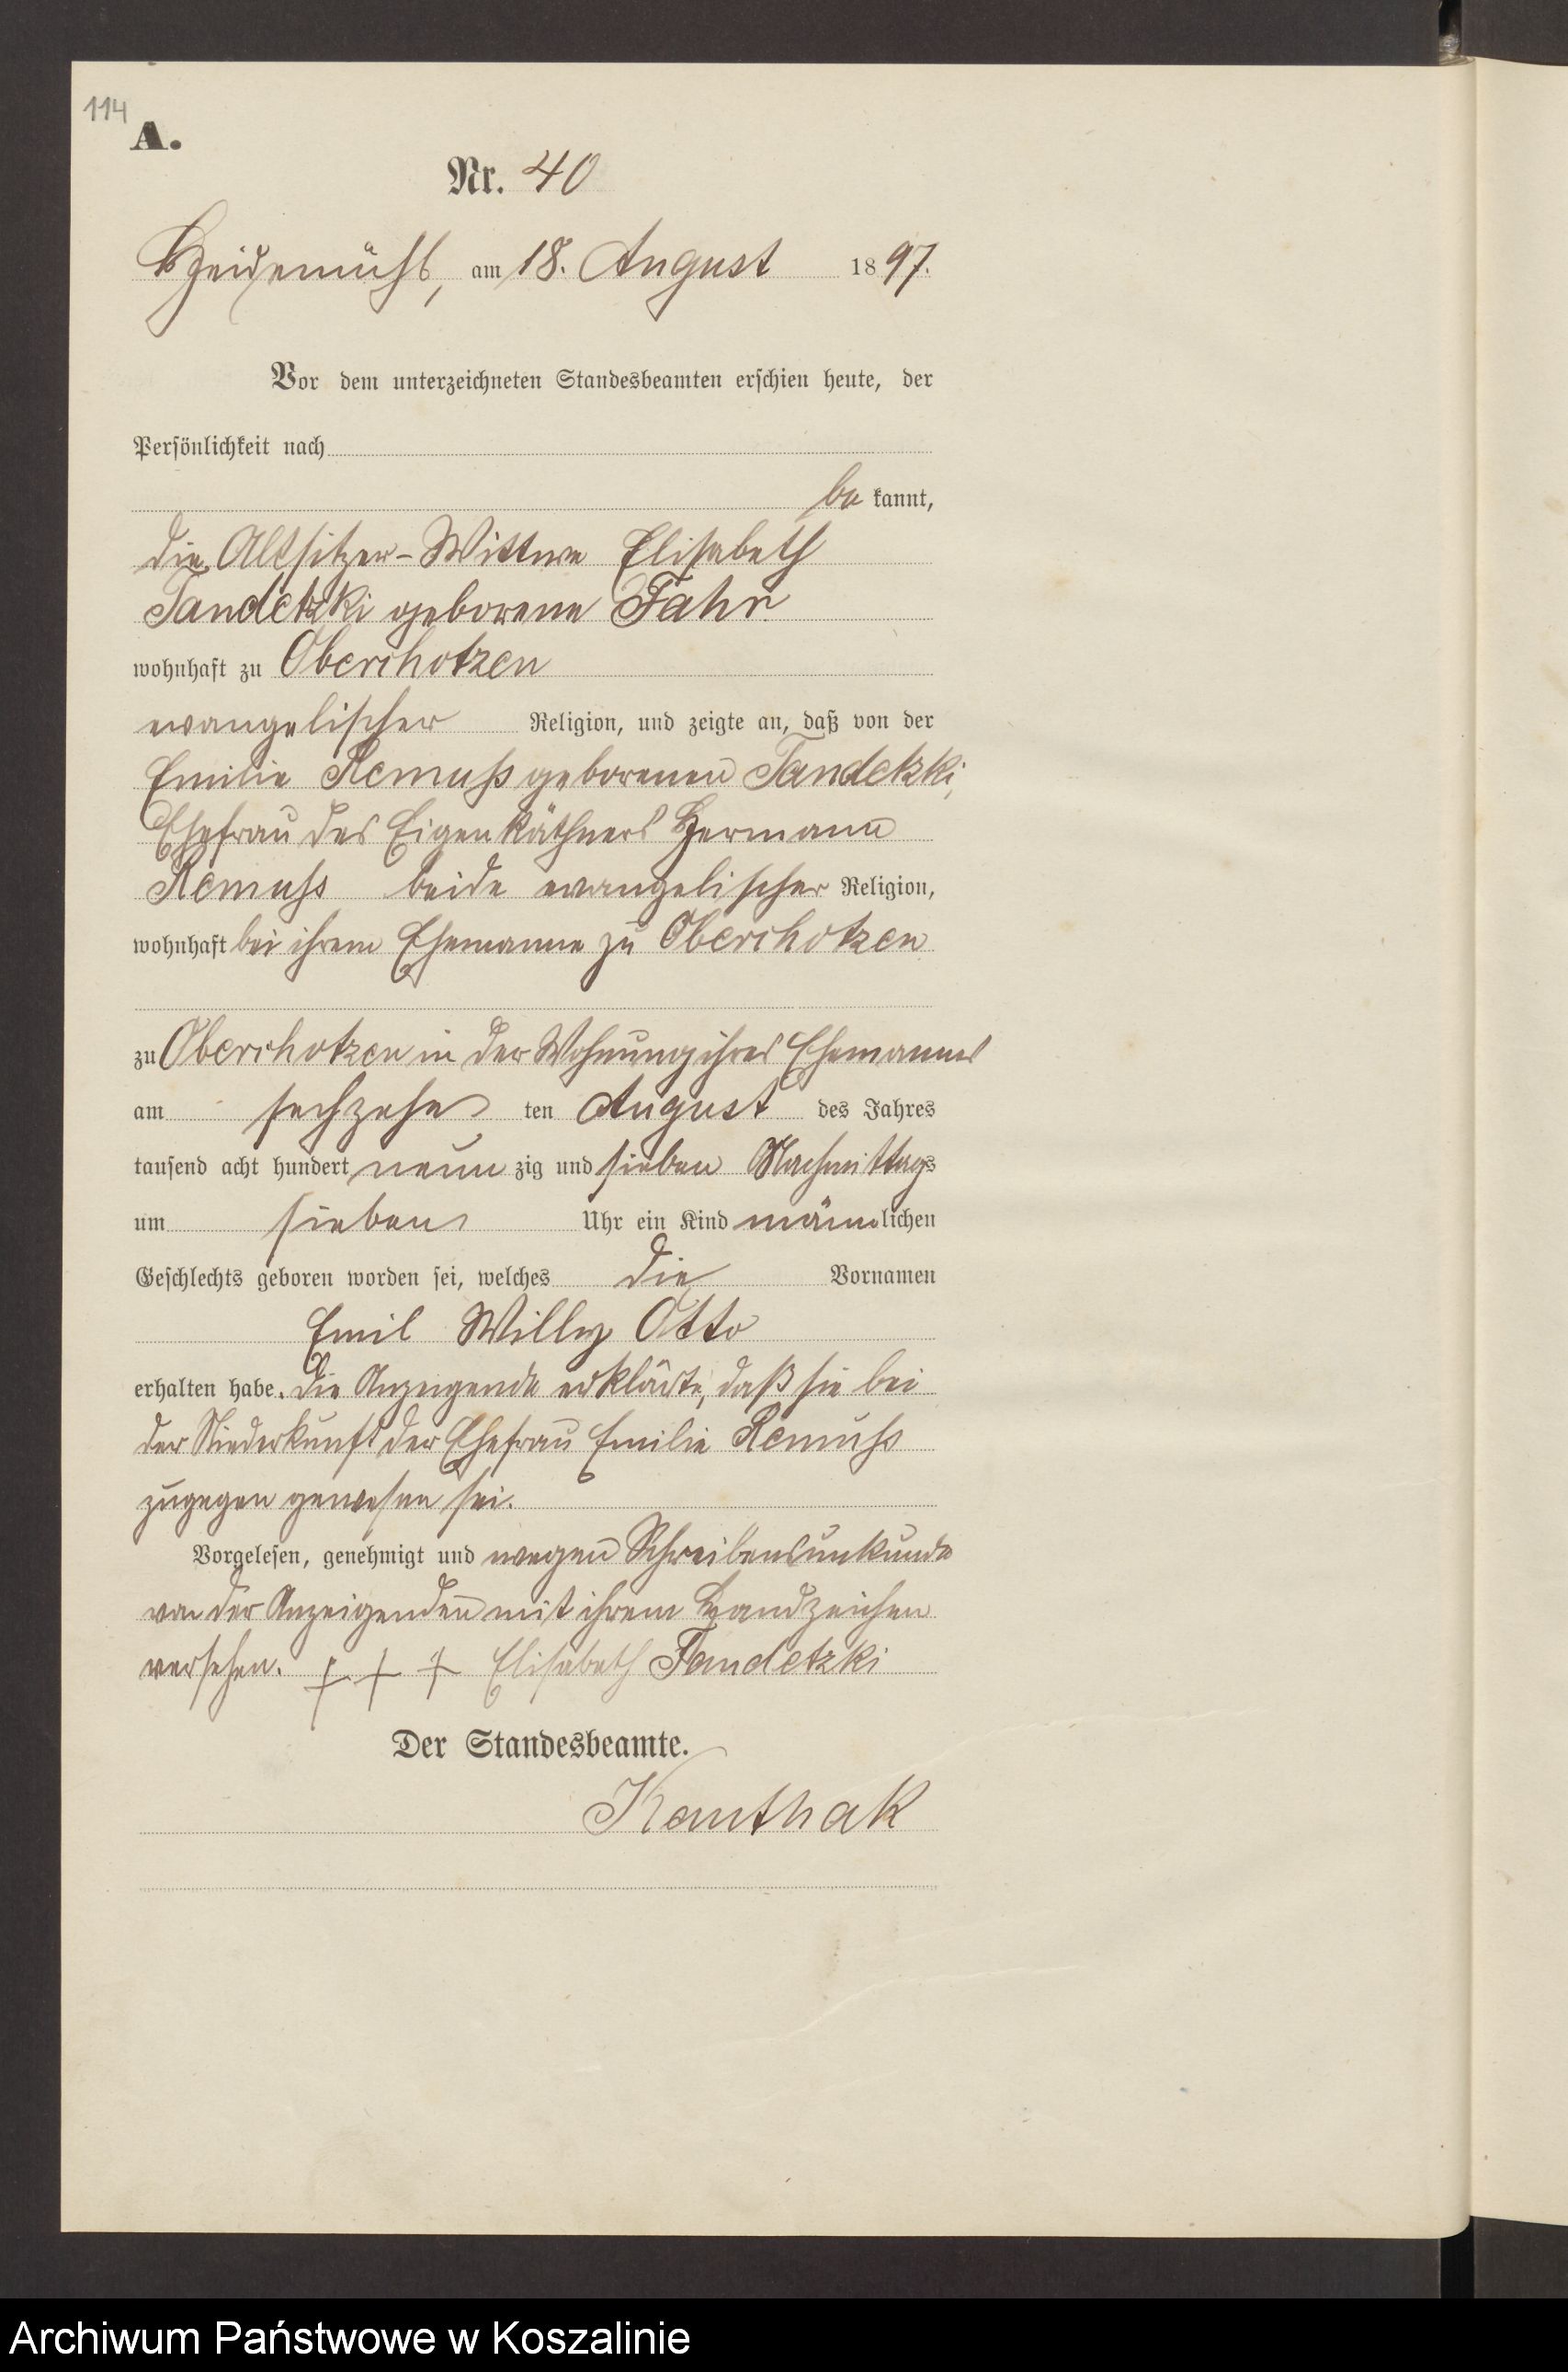 114
A.
Nr. 40
Heidemühl, am 18. August 1897.
Vor dem unterzeichneten Standesbeamten erschien heute, der
Persönlichkeit nach
be kannt,
die Altsitzer-Wittwe Elisabeth
Tandetzki geborene Fahr
wohnhaft zu Oberchotzen
evangelischer Religion, und zeigte an, daß von der
Emilie Remuss geborenen Tandetzki,
Ehefrau des Eigenkäthners Hermann
Remuss beide evangelischer Religion,
wohnhaft bei ihrem Ehemanne zu Oberchotzen
zu Oberchotzen in der Wohnung ihres Ehemannes
am sechzehn ten August des Jahres
tausend acht hundert neun zig und sieben Nachmittags
um sieben Uhr ein Kind männlichen
Geschlechts geboren worden sei, welches die Vornamen
Emil Willy Otto
erhalten habe. Die Anzeigende erklärte, daß sie bei
der Niederkunft der Ehefrau Emilie Remuss
zugegen gewesen sei.
Vorgelesen, genehmigt und wegen Schreibensunkunde
von der Anzeigenden mit ihrem Handzeichen
versehen. + + + Elisabeth Tandetzki
Der Standesbeamte.
Kanthak
Archiwum Państwowe w Koszalinie